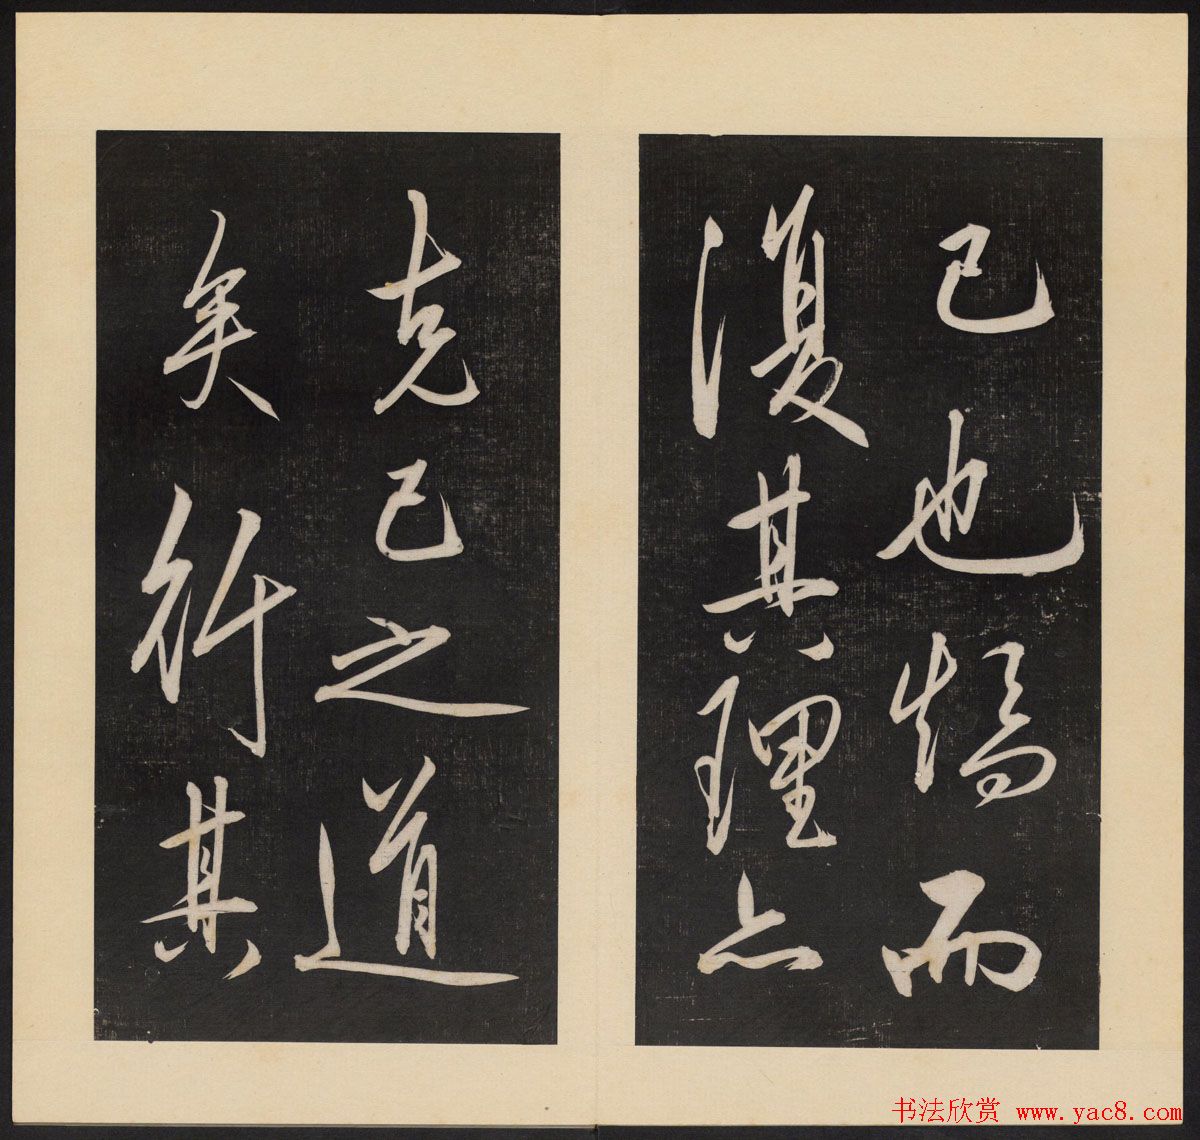 己也矯而
復其理亦
克己之道
矣行其
书法欣赏 www.yac8.com